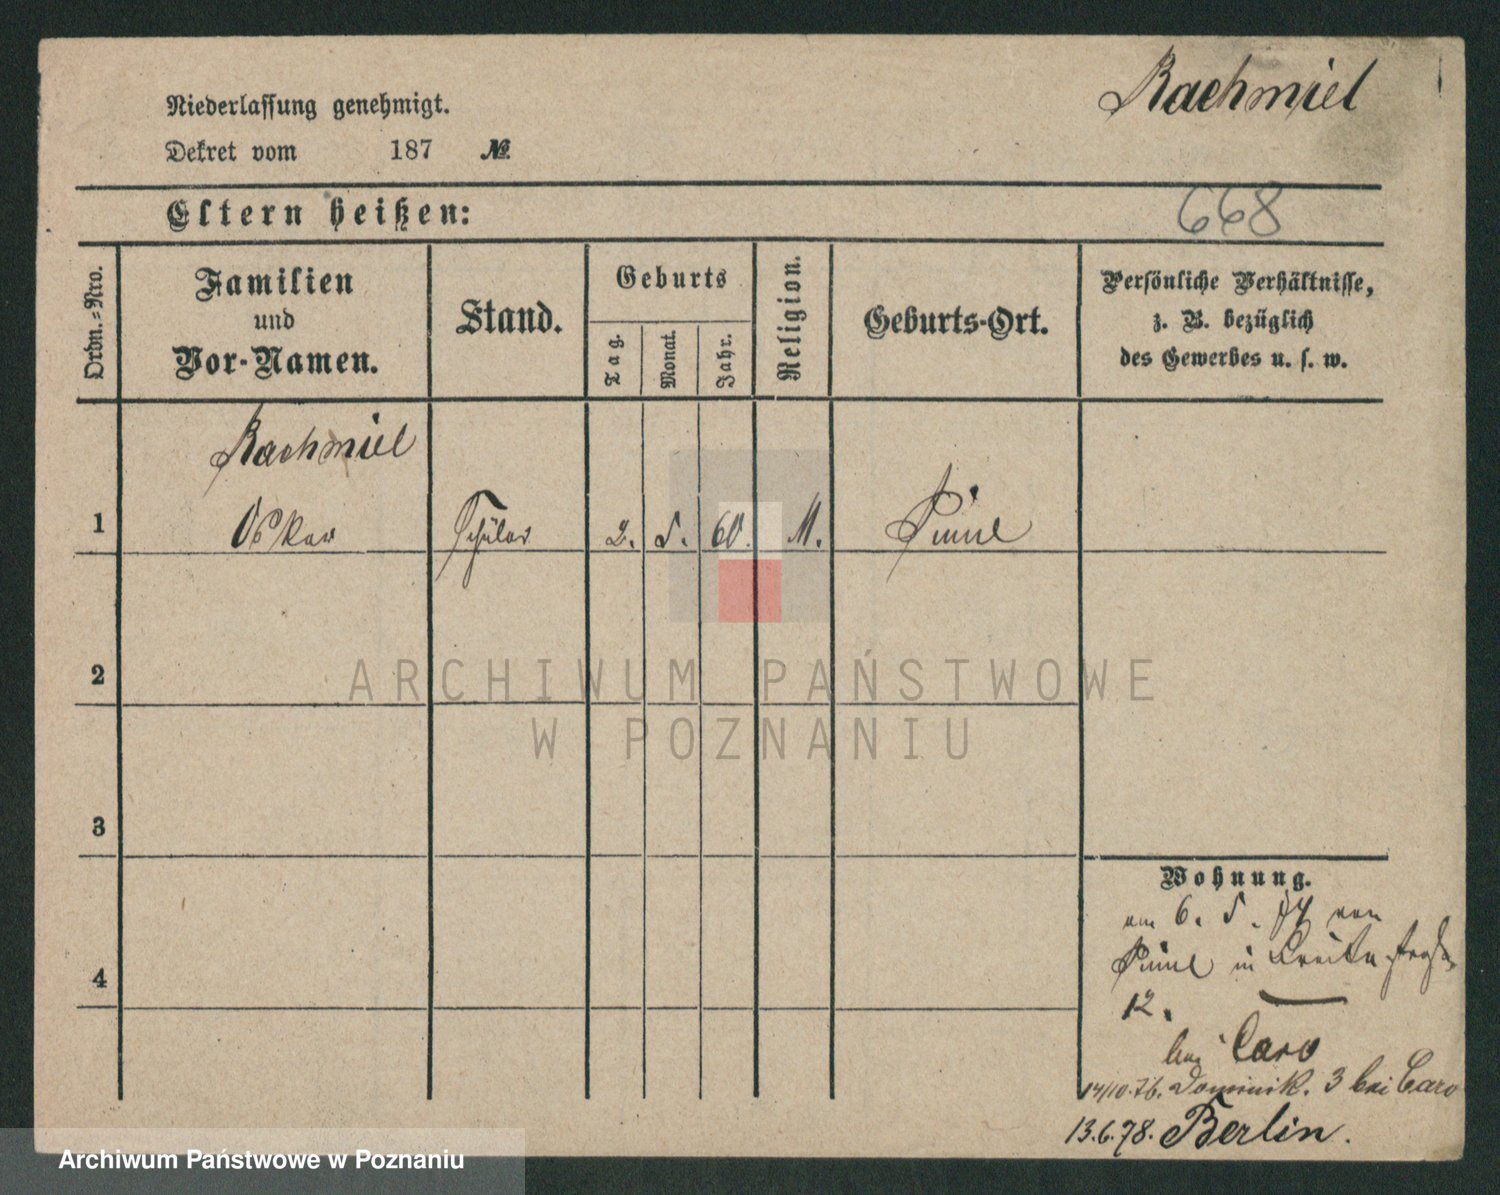 Rachmiel
Niederlassung genehmigt.
Dekret vom 187 №
Eltern heißen:
668
Ordn.-Nro.
Familien
und
Vor-Namen.
Stand.
Geburts
Tag.
Monat.
Jahr.
Religion.
Geburts-Ort.
Persönliche Verhältnisse,
z. B. bezüglich
des Gewerbes u. s. w.
Rachmiel
1 Oskar Schüler 2. 5. 60. M. Pinne
2
3
4
Wohnung.
am 6. 5. 74 von
Pinne in Breitestraße
12.
bei Caro
14/10.76. Dominik. 3 bei Caro
13.6.78. Berlin.
ARCHIWUM PAŃSTWOWE
W POZNANIU
Archiwum Państwowe w Poznaniu